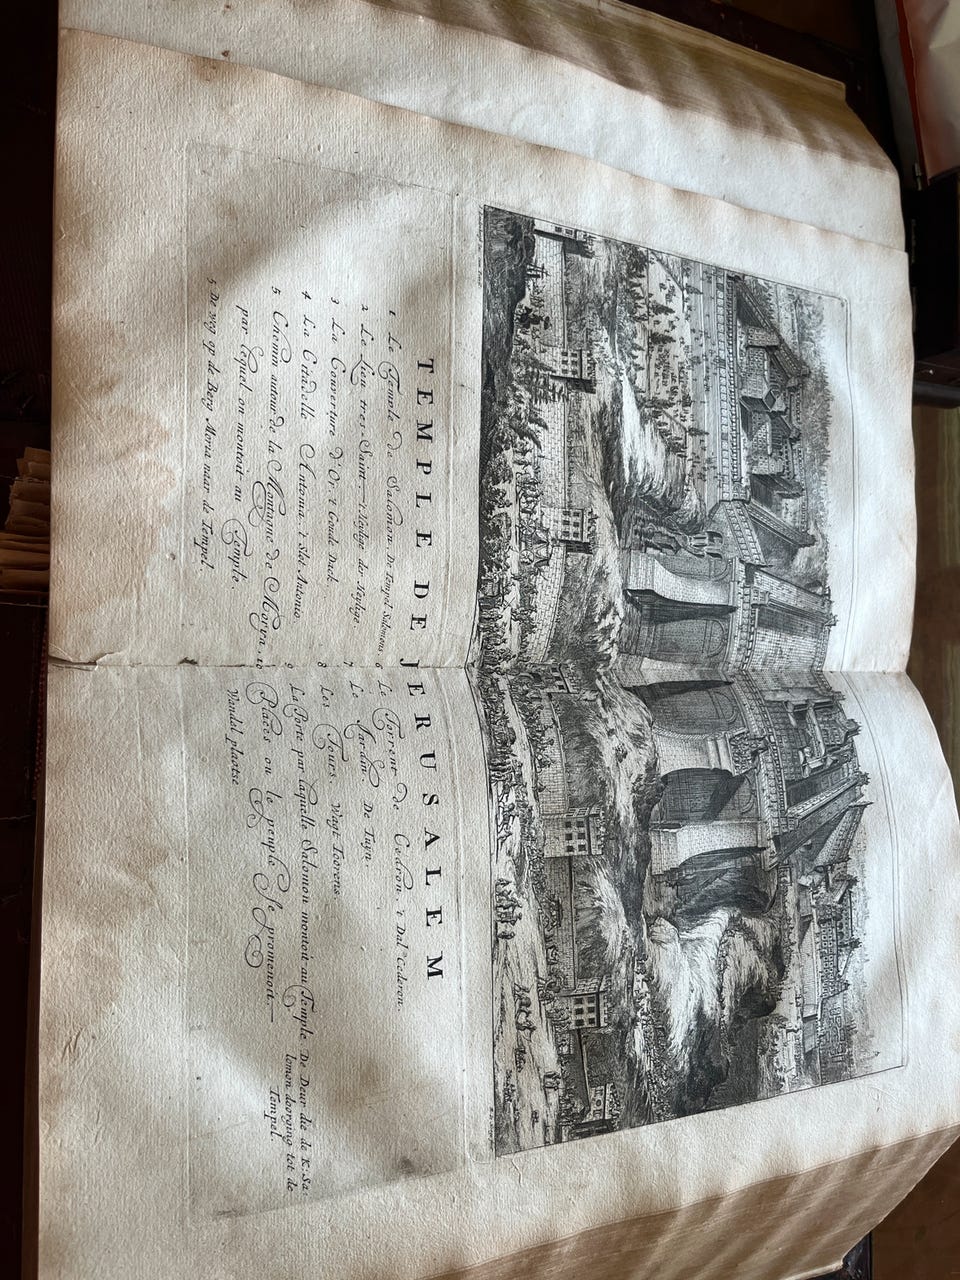 TEMPLE DE JERUSALEM
1 Le Temple de Salomon. De Tempel Salomons.
2 Le Lieu tres-Saint — t'Heylige der Heylige.
3 La Couverture d'Or. t Goude Dack.
4 La Citadelle Antonia. t Slot Antonio.
5 Chemin autour de la Montagne de Morya,
par lequel on montoit au Temple.
5 De weg op de Berg Moria naar de Tempel.
6 Le Torrent de Cedron. t Dal Cederon.
7 Le Jardin. De Tuyn.
8 Les Tours. Wagt Toorens.
9 La Porte par laquelle Salomon montoit au Temple De Deur die de K: Sa:
lomon doorging tot de
Tempel.
10 Places ou le peuple Se promenoit. —
Wandel plaatse